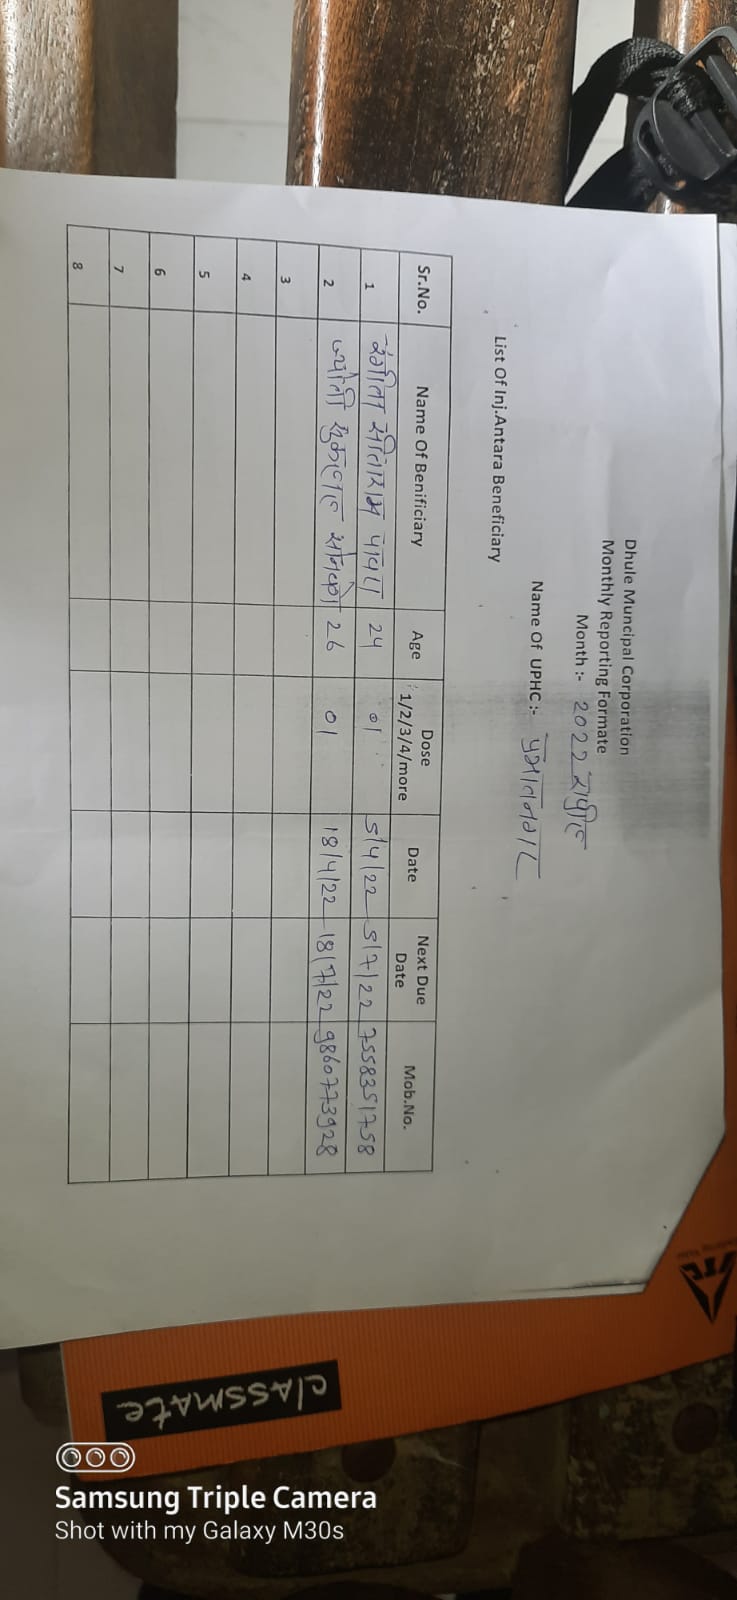 Dhule Muncipal Corporation
Monthly Reporting Formate
Month :- 2022 एप्रील
Name Of UPHC :- प्रभातनगर
List Of Inj.Antara Beneficiary
Sr.No. Name Of Benificiary Age Dose 1/2/3/4/more Date Next Due Date Mob.No.
1 रंगीता सीताराम पावरा 24 01 5/4/22 5/7/22 7558351758
2 ज्योती 26 01 18/4/22 18/7/22 9860773928
3
4
5
6
7
8
ITC
classmate
Samsung Triple Camera
Shot with my Galaxy M30s